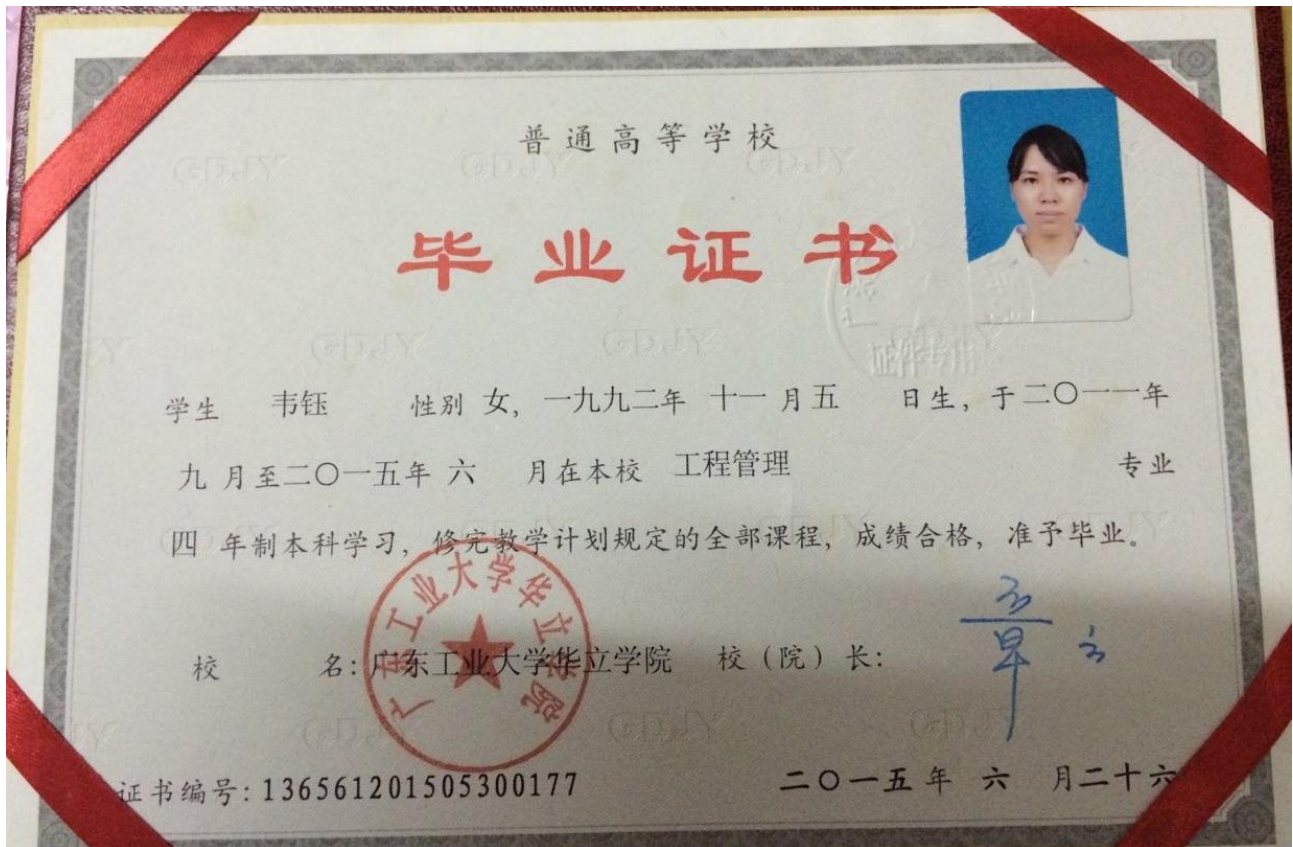 普通高等学校
毕业证书
证件专用
学生 韦钰 性别 女，一九九二年 十一 月五 日生，于二〇一一年
九 月至二〇一五年 六 月在本校 工程管理 专业
四 年制本科学习，修完教学计划规定的全部课程，成绩合格，准予毕业。
广东工业大学华立学院
校 名：广东工业大学华立学院 校（院）长：
证书编号：136561201505300177 二〇一五年 六 月二十六